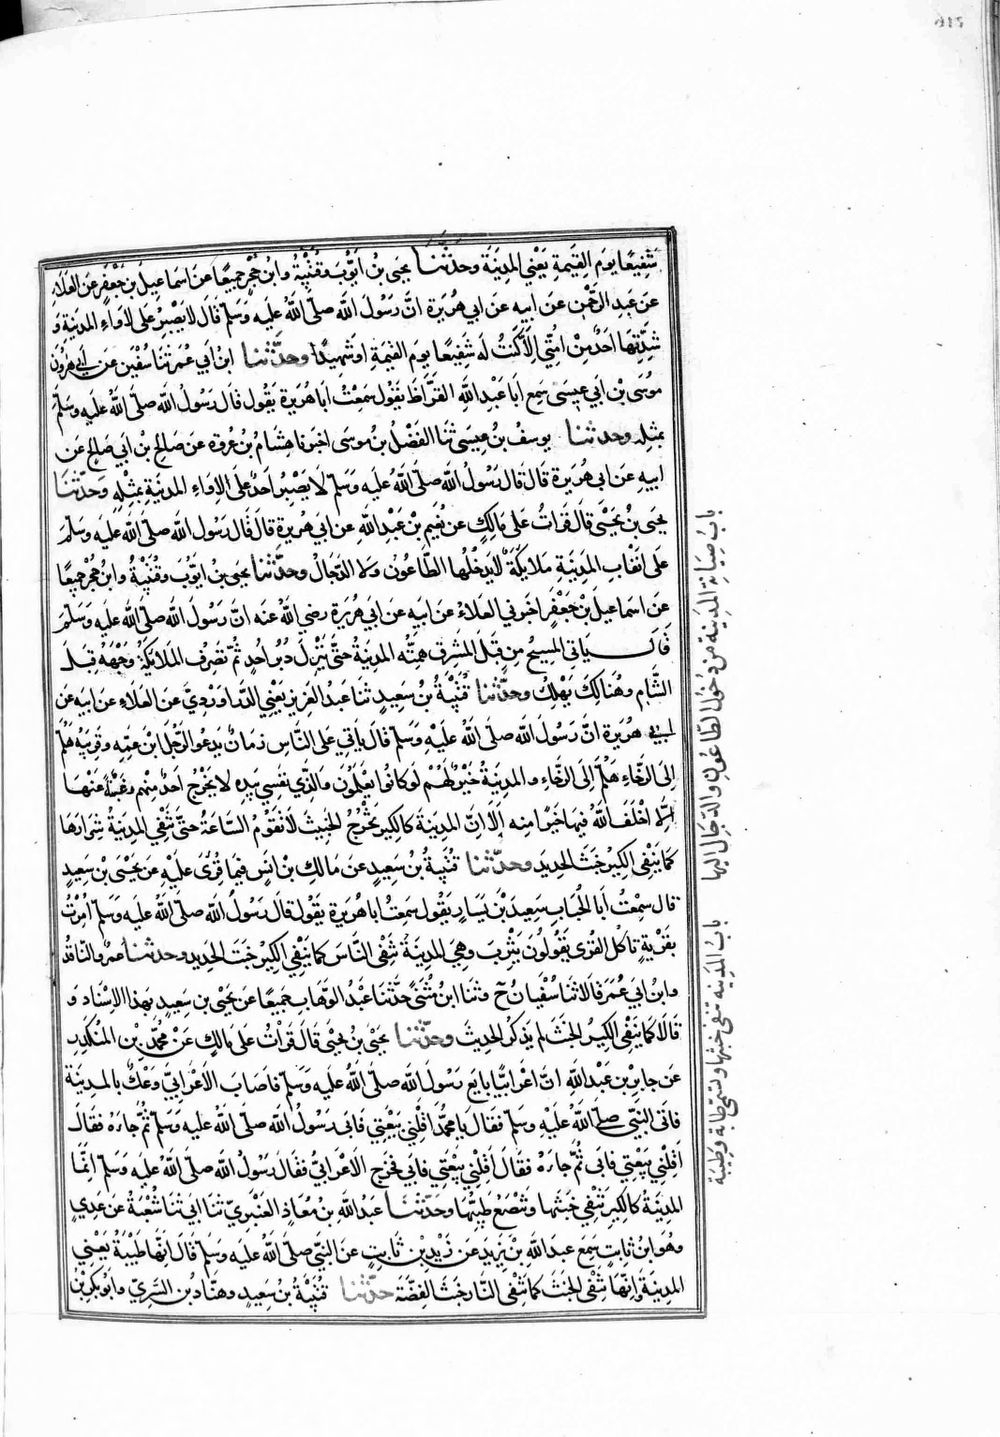 شَفِيعًا يومَ القِيمةِ يَعْني المدِينَةَ وحَدَّثنا يحيى بنُ ايّوُبَ وقُتَيْبةُ وابنُ حُجْرٍ جميعًا عَنَ اسماعيلَ بنِ جَعْفَرٍ عَنِ العَلاءِ
عن عَبدِ الرَّحْمنِ عن ابيهِ عن ابي هُرَيرةَ انَّ رَسُولَ اللهِ صلّى اللهُ عليهِ وسَلّم قال لا يَصْبِرُ على لاواءِ المدينةِ وَ
شدَّتِهَا احَدٌ مِن امَّتِي اِلّا كُنتُ لَه شَفِيعًا يومَ القيمةِ او شهيدًا وحدّثنا ابنُ ابي عُمَرَ ثنا سُفْيٰن عن ابي هٰرُون
مُوسَى بْنِ ابي عِيسَى سَمِعَ ابَا عَبْدِ اللهِ القَرَّاظَ يَقُول سَمِعْتُ ابا هُرَيرةَ يقُول قال رَسُولُ اللهِ صلّى اللهُ عليهِ وسَلّمَ
بمثلِه وحدثنا يوسفُ بنُ عِيسَى ثنا الفَضْلُ بنُ موسَى اخبرنا هِشَامُ بنُ عروةَ عن صَالحِ بْنِ ابي صَالحٍ عَن
ابيهِ عَن ابي هُرَيرةَ قَالَ قال رَسُولُ اللهِ صلّى اللهُ عليهِ وَسَلّم لَا يَصْبِرُ احَدٌ على الاواءِ المدينةِ بمثْلِهِ وَحَدّثَنا
يحيَى بنُ يَحْيَى قال قَرَأتُ على مَالِكٍ عن نُعَيمِ بْنِ عَبْدِ اللهِ عن ابي هُرَيرةَ قالَ قَال رَسُول اللهِ صلّى اللهُ عليهِ وسَلّمَ
على انْقَابِ المدِينَةِ مَلايكَةٌ لا يَدْخُلُها الطّاعُونُ ولا الدّجّالُ وحدَّثَنا يحيى بنُ ايّوُبَ وقُتَيْبةُ وابنُ حُجْرٍ جميعًا
عن اسماعيلَ بْنِ جَعْفَرٍ اخبرني العَلاءُ عن ابيهِ عن ابي هُرَيرةَ رضي اللهُ عنه انّ رَسُولَ اللهِ صلّى اللهُ عليهِ وسَلّمَ
قال يَاتي المسيحُ مِن قِبَلِ المَشْرِقِ هِمَّتُه المدِينةُ حتَّى يَنْزِلَ دُبُرَ اُحُدٍ ثُمّ تَصْرِفُ المَلايكَةُ وَجْهَهُ قِبَلَ
الشّامِ وهُنالكَ يَهْلِكُ وحدّثنا قُتَيْبةُ بْنُ سَعِيدٍ ثنا عَبدُ العَزيزِ يَعْني الدّراوَرْدِيَّ عن العَلاءِ عن ابيهِ عن
ابي هُرَيرةَ انَّ رَسُولَ اللهِ صلّى اللهُ عليْهِ وسَلّم قال يَأتي على النّاسِ زمَانٌ يَدعُو الرَّجُلُ ابنَ عمِّه وقريبَهُ هَلُمَّ
اِلى الرّخاءِ هَلُمَّ اِلى الرّخاءِ والمدِينَةُ خيْرٌ لهُمْ لو كانُوا يَعْلَمُونَ والّذِي نفسِي بيدِه لا يخْرُجُ احدٌ منْهم رغْبَةً عَنْهَا
اِلّا اخْلَفَ اللهُ فيها خَيْرًا منه اَلَا اِنَّ المدينةَ كالكِيرِ تُخْرِجُ الخبِيثَ لا تَقُومُ السّاعةُ حتَّى تَنْفِيَ المدِينةُ شِرارَهَا
كما يَنْفِي الكِيرُ خَبَثَ الحَديدَ وحدّثنا قُتَيبةُ بنُ سَعِيدٍ عن مَالِكِ بْنِ انَسٍ فيما قُرِئَ عليْهِ عَن يَحْيَى بنِ سَعِيدٍ
قال سمعْتُ ابَا الحُبَابِ سَعِيدَ بْنَ يَسَارٍ يَقُول سَمِعتُ ابا هُرَيرةَ يَقُول قالَ رَسُولُ اللهِ صلّى اللهُ عليهِ وسَلّم اُمِرْتُ
بقَرْيَةٍ تاكُلُ القُرَى يَقُولُونَ يَثْرِبَ وهِيَ المدِينَةُ تَنْفِي النّاسَ كما يَنْفِي الكِيرُ خَبَثَ الحَديدِ وحدثنا عمْرو النّاقدُ
وابنُ ابي عُمَرَ قالا ثنا سُفْيَانُ ح وثنا ابنُ مُثَنًّى حَدّثنا عَبْدُ الوَهّابِ جميعًا عن يَحْيَى بنِ سَعِيدٍ بهذا الاِسْنادِ وَ
قَالَا كَمَا يَنْفِي الكِيرُ الخَبَثَ لم يَذكُر الحديدَ وحدّثنا يحيَى بْنُ يحيى قال قَرَأتُ على مَالكٍ عَن مُحمّدِ بْنِ المُنْكَدِرِ
عن جابرِ بْنِ عَبْدِ اللهِ انَّ اعْرابيًّا بايَعَ رسُولَ اللهِ صلّى اللهُ عليهِ وسَلّم فاصَابَ الاعْرابيَّ وَعْكٌ بالمدِينَة
فاتى النبيَّ صلّى اللهُ عليْهِ وسَلّم فقالَ يا محمُّدُ اقِلْني بَيْعَتِي فابى رَسُولُ اللهِ صلّى اللهُ عليه وسَلّم ثُمَّ جاءَهُ فقال
اقِلْني بَيْعَتِي فابَى ثُمّ جاءَهُ فقالَ اقِلْني بَيْعَتِي فابي فخَرَج الاَعْرابيُّ فقالَ رَسُولُ اللهِ صلّى اللهُ عليهِ وسلّم انّما
المدِينَةُ كالكِيرِ تَنْفِي خَبَثَها وتَنْصَعُ طَيِّبُها وحَدّثنا عبَدُ اللهِ بن مُعَاذٍ العَنْبَرِيّ ثنا ابي ثنا شُعْبَةُ عن عَدِيٍ
وهُو ابنُ ثابِتٍ سَمِعَ عبدَ اللهِ بْنَ يَزيدَ عن زَيْدِ بْنِ ثابتٍ عن النّبيِّ صلّى اللهُ عليهِ وسَلّم قَالَ اِنّها طَيْبَةُ يَعْني
المدِينَةَ وَاِنّها تَنْفِي الخبَثَ كما تَنْفِي النّارُ خَبَثَ الفِضّةَ حدّثنا قُتَيْبةُ بنُ سَعِيدٍ وهنّادُ بن السّرِيِّ وابُو بكرِ بْنُ
بابُ صِيَانةِ المدِينةِ من دُخُولِ الطّاعُونِ والدّجّالِ اليها
بابُ المدينه تنفى خبثها وتسمى طابة وطيبة